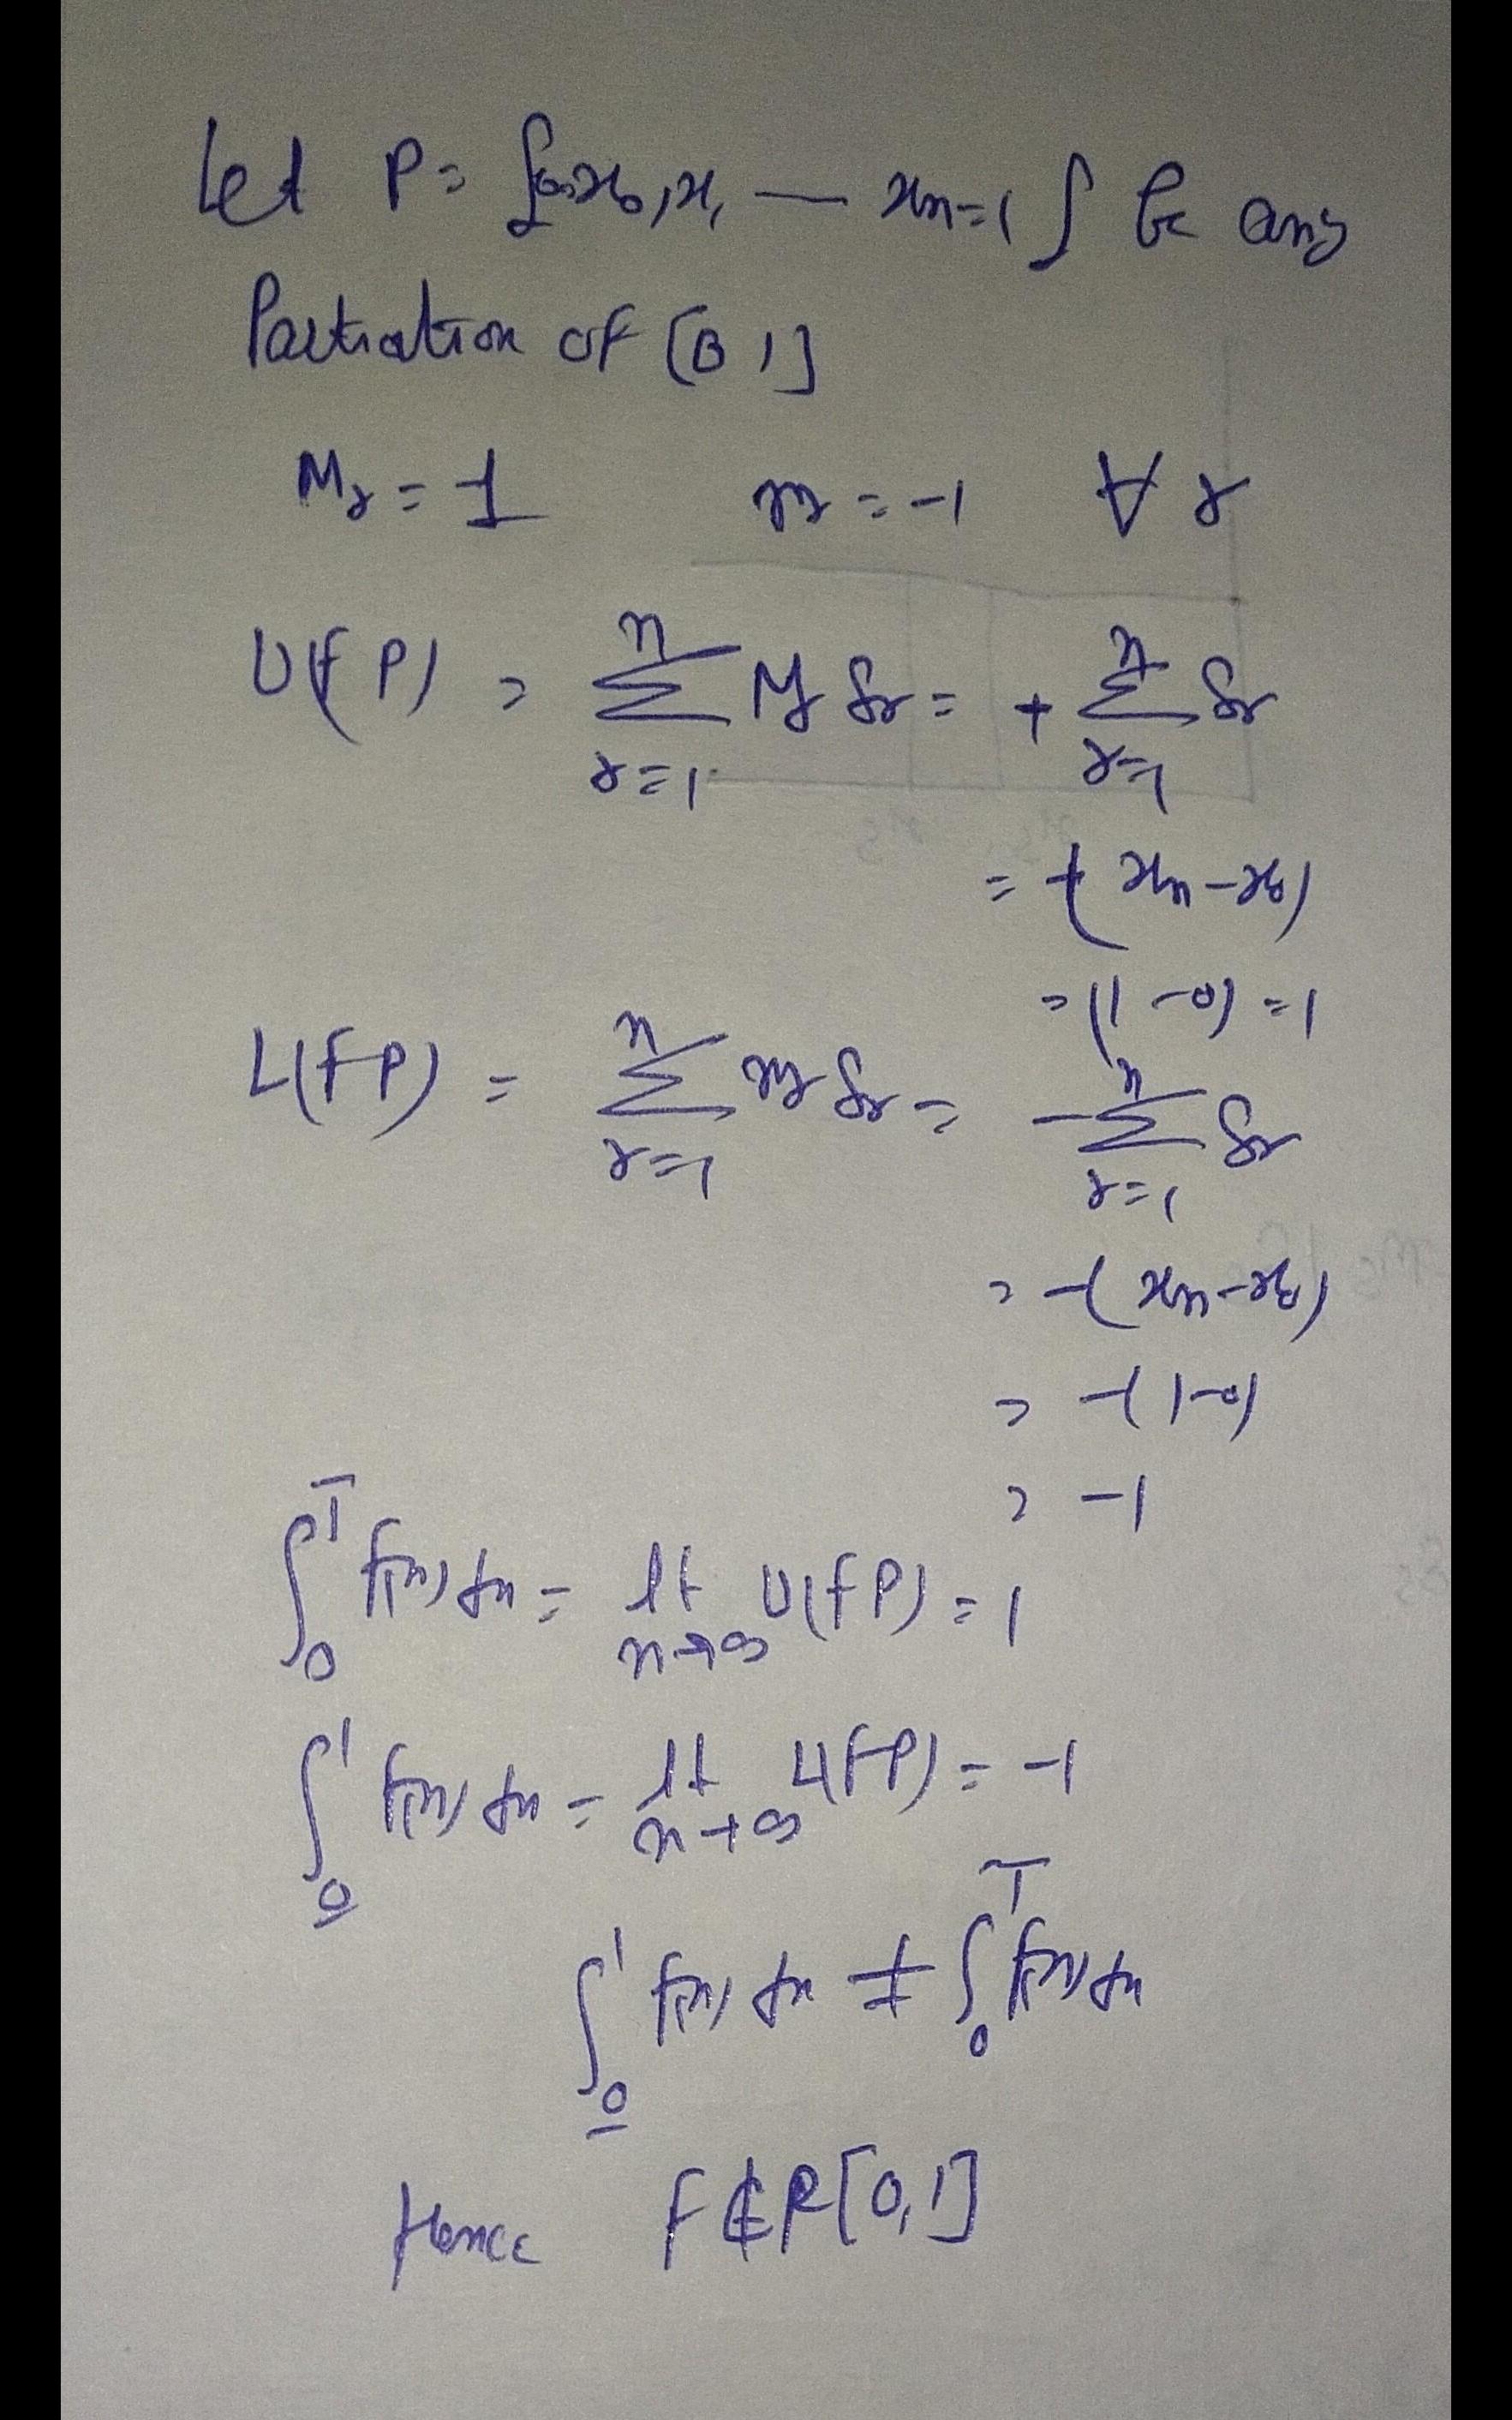 Let P = {0=x₀, x₁ — xₙ=1} be any
Partiation of [0 1]
Mᵣ = 1 mᵣ = -1 ∀ r
U(f P) = ∑ⁿᵣ₌₁ Mᵣ δᵣ = + ∑ⁿᵣ₌₁ δᵣ
= +(xₙ - x₀)
= (1 - 0) = 1
L(f P) = ∑ⁿᵣ₌₁ mᵣ δᵣ = - ∑ⁿᵣ₌₁ δᵣ
= -(xₙ - x₀)
= -(1-0)
= -1
∫₀^1̅ f(x) dx = lt n→∞ U(f P) = 1
∫_0̲^1 f(x) dx = lt n→∞ L(f P) = -1
∫_0̲^1 f(x) dx ≠ ∫₀^1̅ f(x) dx
Hence f ∉ R[0,1]